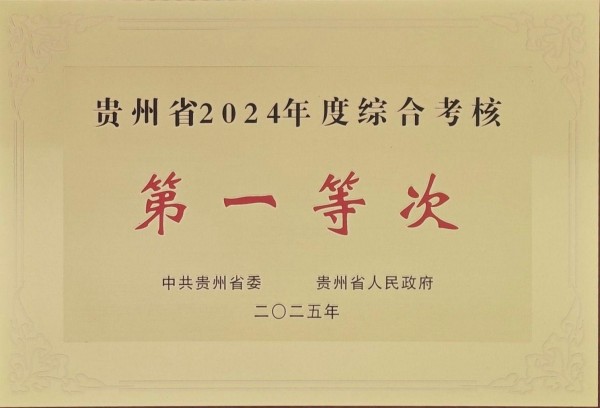 贵州省2024年度综合考核
第一等次
中共贵州省委 贵州省人民政府
二〇二五年